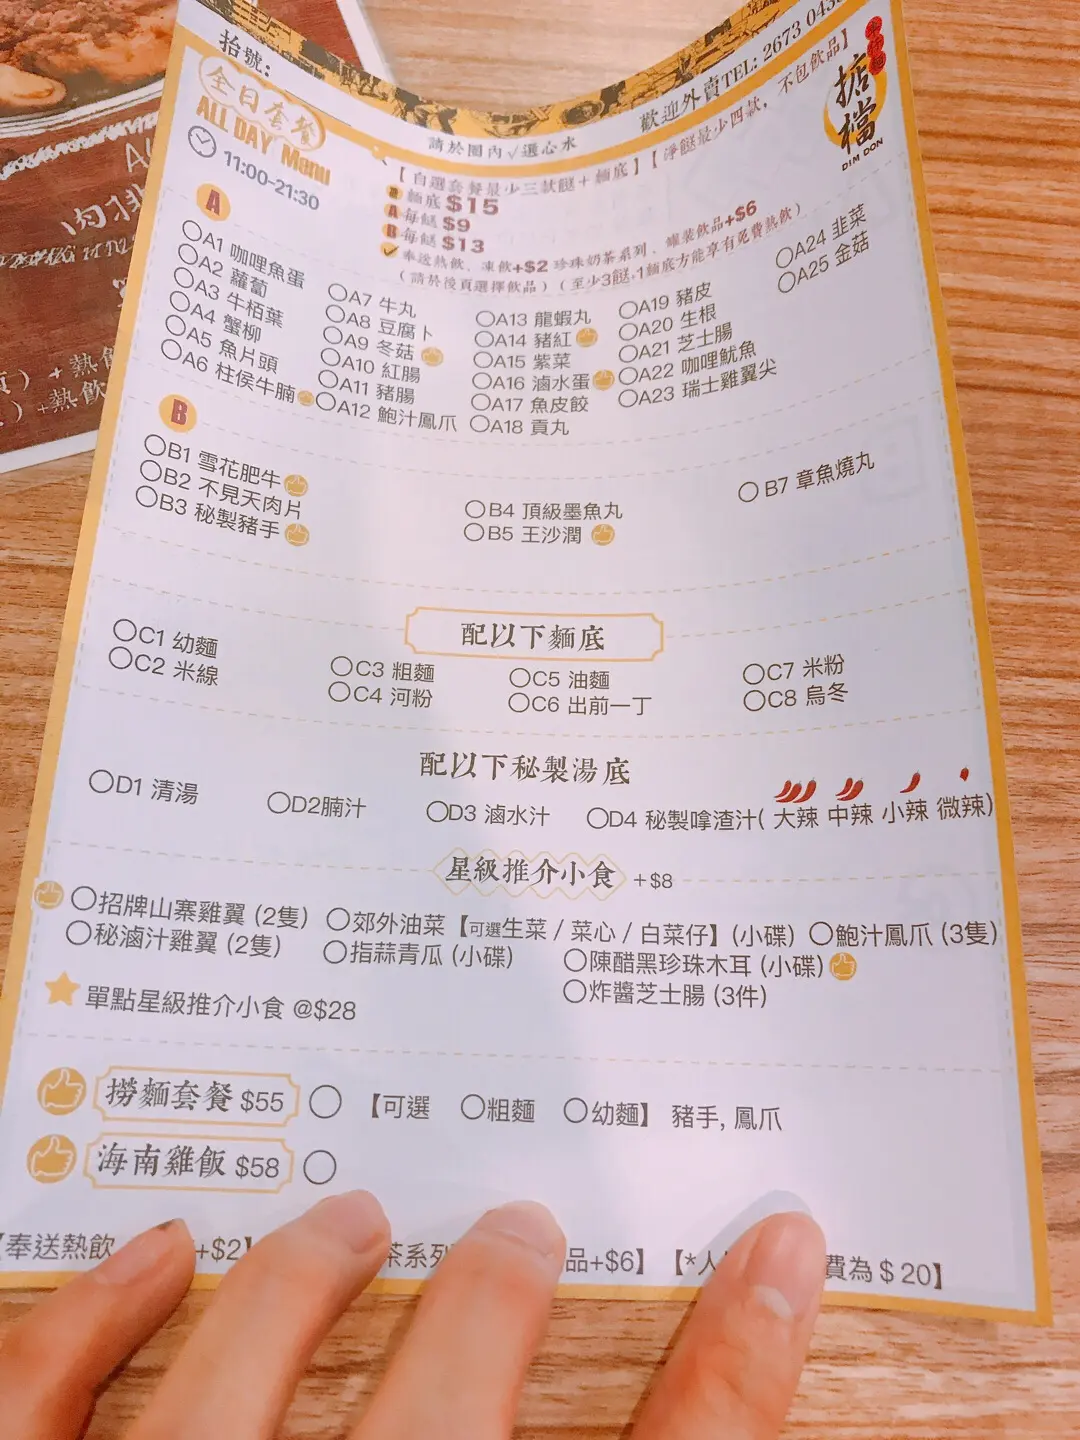 抬號:
歡迎外賣TEL: 2673 043
掂檔
DIM DON
全日套餐
ALL DAY Menu
11:00-21:30
請於圈內√選心水
【自選套餐最少三款餸+麵底】【淨餸最少四款，不包飲品】
麵底 $15
A 每餸 $9
B 每餸 $13
奉送熱飲、凍飲+$2 珍珠奶茶系列、罐裝飲品+$6
(請於後頁選擇飲品)(至少3餸,1麵底方能享有免費熱飲)
A
A1 咖哩魚蛋
A2 蘿蔔
A3 牛栢葉
A4 蟹柳
A5 魚片頭
A6 柱侯牛腩
A7 牛丸
A8 豆腐卜
A9 冬菇
A10 紅腸
A11 豬腸
A12 鮑汁鳳爪
A13 龍蝦丸
A14 豬紅
A15 紫菜
A16 滷水蛋
A17 魚皮餃
A18 貢丸
A19 豬皮
A20 生根
A21 芝士腸
A22 咖哩魷魚
A23 瑞士雞翼尖
A24 韭菜
A25 金菇
B
B1 雪花肥牛
B2 不見天肉片
B3 秘製豬手
B4 頂級墨魚丸
B5 王沙潤
B7 章魚燒丸
配以下麵底
C1 幼麵
C2 米線
C3 粗麵
C4 河粉
C5 油麵
C6 出前一丁
C7 米粉
C8 烏冬
配以下秘製湯底
D1 清湯
D2腩汁
D3 滷水汁
D4 秘製嗱渣汁( 大辣 中辣 小辣 微辣)
星級推介小食 +$8
招牌山寨雞翼 (2隻)
秘滷汁雞翼 (2隻)
郊外油菜【可選生菜 / 菜心 / 白菜仔】(小碟)
指蒜青瓜 (小碟)
鮑汁鳳爪 (3隻)
陳醋黑珍珠木耳 (小碟)
炸醬芝士腸 (3件)
單點星級推介小食 @$28
撈麵套餐 $55 【可選 粗麵 幼麵】 豬手, 鳳爪
海南雞飯 $58
【奉送熱飲 +$2】 茶系列 品+$6】【*人 費為 $ 20】
肉排
+熱飲